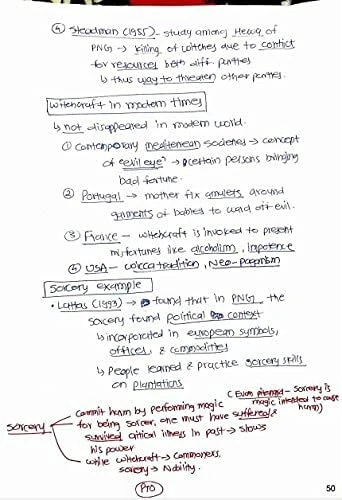 ④ Steadman (1985) - study among Hewa of
PNG → killing of witches due to conflict
for resources betn diff. parties
↳ thus way to threaten other parties.
Witchcraft in modern times
↳ not disappeared in modern world.
① Contemporary mediterean societies → concept
of "evil eye" → certain persons bringing
bad fortune.
② Portugal → mother fix amulets around
garments of babies to ward off evil.
③ France – witchcraft is invoked to present
misfortunes like alcoholism, impotence
④ USA – wicca tradition, Neo-paganism
Sorcery example
• Lattas (1993) → found that in PNG, the
sorcery found political context
↳ incorporated in european symbols,
offices, & commodities
↳ People learned & practice sorcery skills
on plantations
(Evan pritchard – sorcery is
magic intended to cause
harm)
Commit harm by performing magic
Sorcery
for being sorcer, one must have suffered &
survived critical illness in past → shows
his power
while witchcraft → commoners,
sorcery → Nobility.
PTO
50